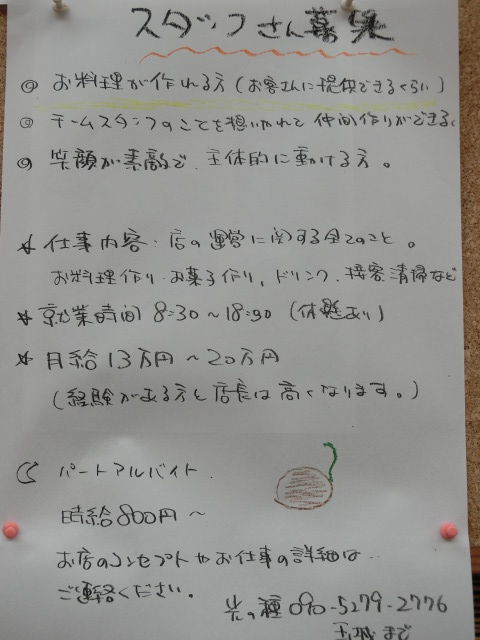 スタッフさん募集
◎ お料理が作れる方（お客さんに提供できるくらい）
◎ チームスタッフのことを想いやれて 仲間作りができる、
◎ 笑顔が素敵で、主体的に動ける方。
☆ 仕事内容・店の運営に関する全てのこと。
お料理作り お菓子作り、ドリンク、接客 清掃など
☆ 就業時間 8:30～18:30（休憩あり）
☆ 月給 13万円～20万円
（経験がある方と店長は高くなります。）
パートアルバイト
時給 800円～
お店のコンセプトやお仕事の詳細は
ご連絡ください。
の種 090-5279-2776
玉城まで